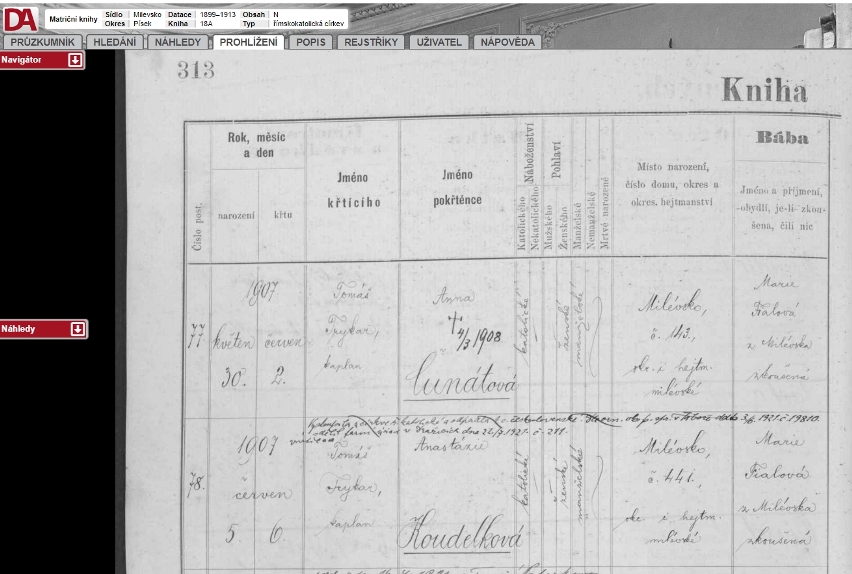 DA
Matriční knihy Sídlo Milevsko Datace 1899–1913 Obsah N
Okres Písek Kniha 18A Typ římskokatolická církev
PRŮZKUMNÍK HLEDÁNÍ NÁHLEDY PROHLÍŽENÍ POPIS REJSTŘÍKY UŽIVATEL NÁPOVĚDA
Navigátor
Náhledy
313
Kniha
Číslo post.
Rok, měsíc
a den
narození křtu
Jméno
křtícího
Jméno
pokřtěnce
Náboženství
Katolického
Nekatolického
Pohlaví
Mužského
Ženského
Manželské
Nemanželské
Mrtvě narozené
Místo narození,
číslo domu, okres a
okres. hejtmanství
Bába
Jméno a příjmení,
obydlí, je-li zkou-
šena, čili nic
77
1907
květen červen
30. 2.
Tomáš
Frykar,
kaplan
Anna
† 4/3 1908
Čunátová
katolické
ženské
manželské
Milévsko,
č. 143.,
okr. i hejtm.
milévské
Marie
Fialová
z Milévska
zkoušená
78.
1907
červen
5 6.
Tomáš
Frykar,
kaplan
Anastázie
Koudelková
katolické
ženské
manželské
Milévsko,
č. 441.,
okr. i hejtm.
milévské
Marie
Fialová
z Milévska
zkoušená